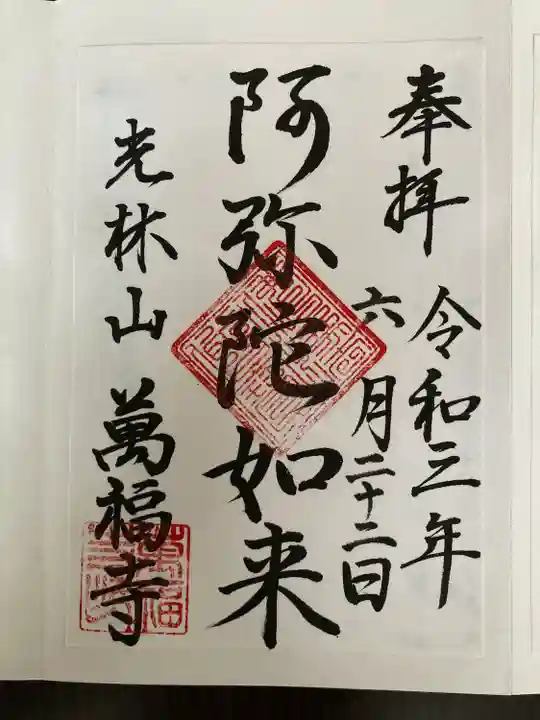 奉拝
令和三年
六月二十二日
阿弥陀如来
光林山 萬福寺